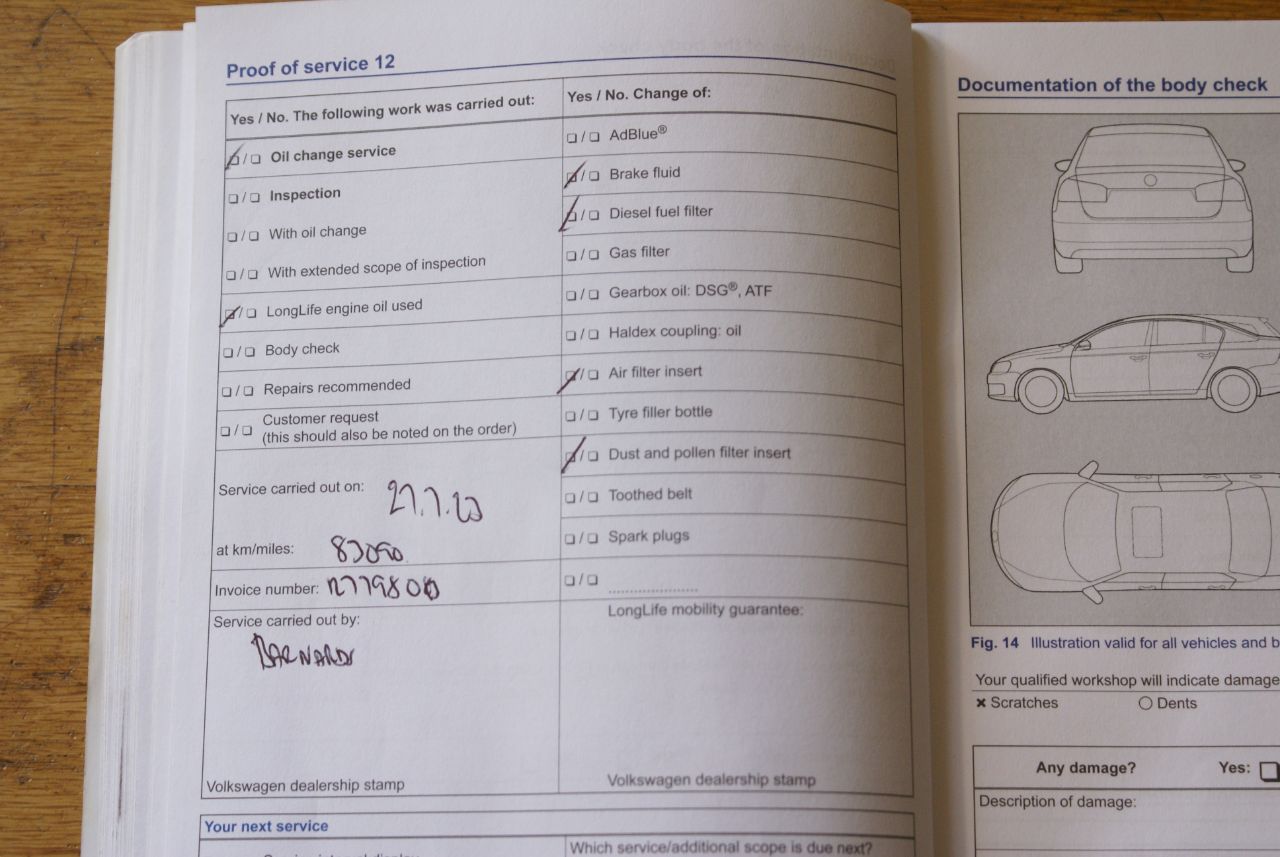 Proof of service 12
Yes / No. The following work was carried out:
❏ / ❏ Oil change service
❏ / ❏ Inspection
❏ / ❏ With oil change
❏ / ❏ With extended scope of inspection
❏ / ❏ LongLife engine oil used
❏ / ❏ Body check
❏ / ❏ Repairs recommended
❏ / ❏ Customer request
(this should also be noted on the order)
Service carried out on: 27.7.20
at km/miles:
Invoice number:
Service carried out by:
BARNARDS
Volkswagen dealership stamp
Yes / No. Change of:
❏ / ❏ AdBlue®
❏ / ❏ Brake fluid
❏ / ❏ Diesel fuel filter
❏ / ❏ Gas filter
❏ / ❏ Gearbox oil: DSG®, ATF
❏ / ❏ Haldex coupling: oil
❏ / ❏ Air filter insert
❏ / ❏ Tyre filler bottle
❏ / ❏ Dust and pollen filter insert
❏ / ❏ Toothed belt
❏ / ❏ Spark plugs
❏ / ❏ ......................
LongLife mobility guarantee:
Volkswagen dealership stamp
Your next service
Which service/additional scope is due next?
Documentation of the body check
Fig. 14 Illustration valid for all vehicles and b
Your qualified workshop will indicate damage
✖ Scratches
○ Dents
Any damage? Yes: ❏
Description of damage: